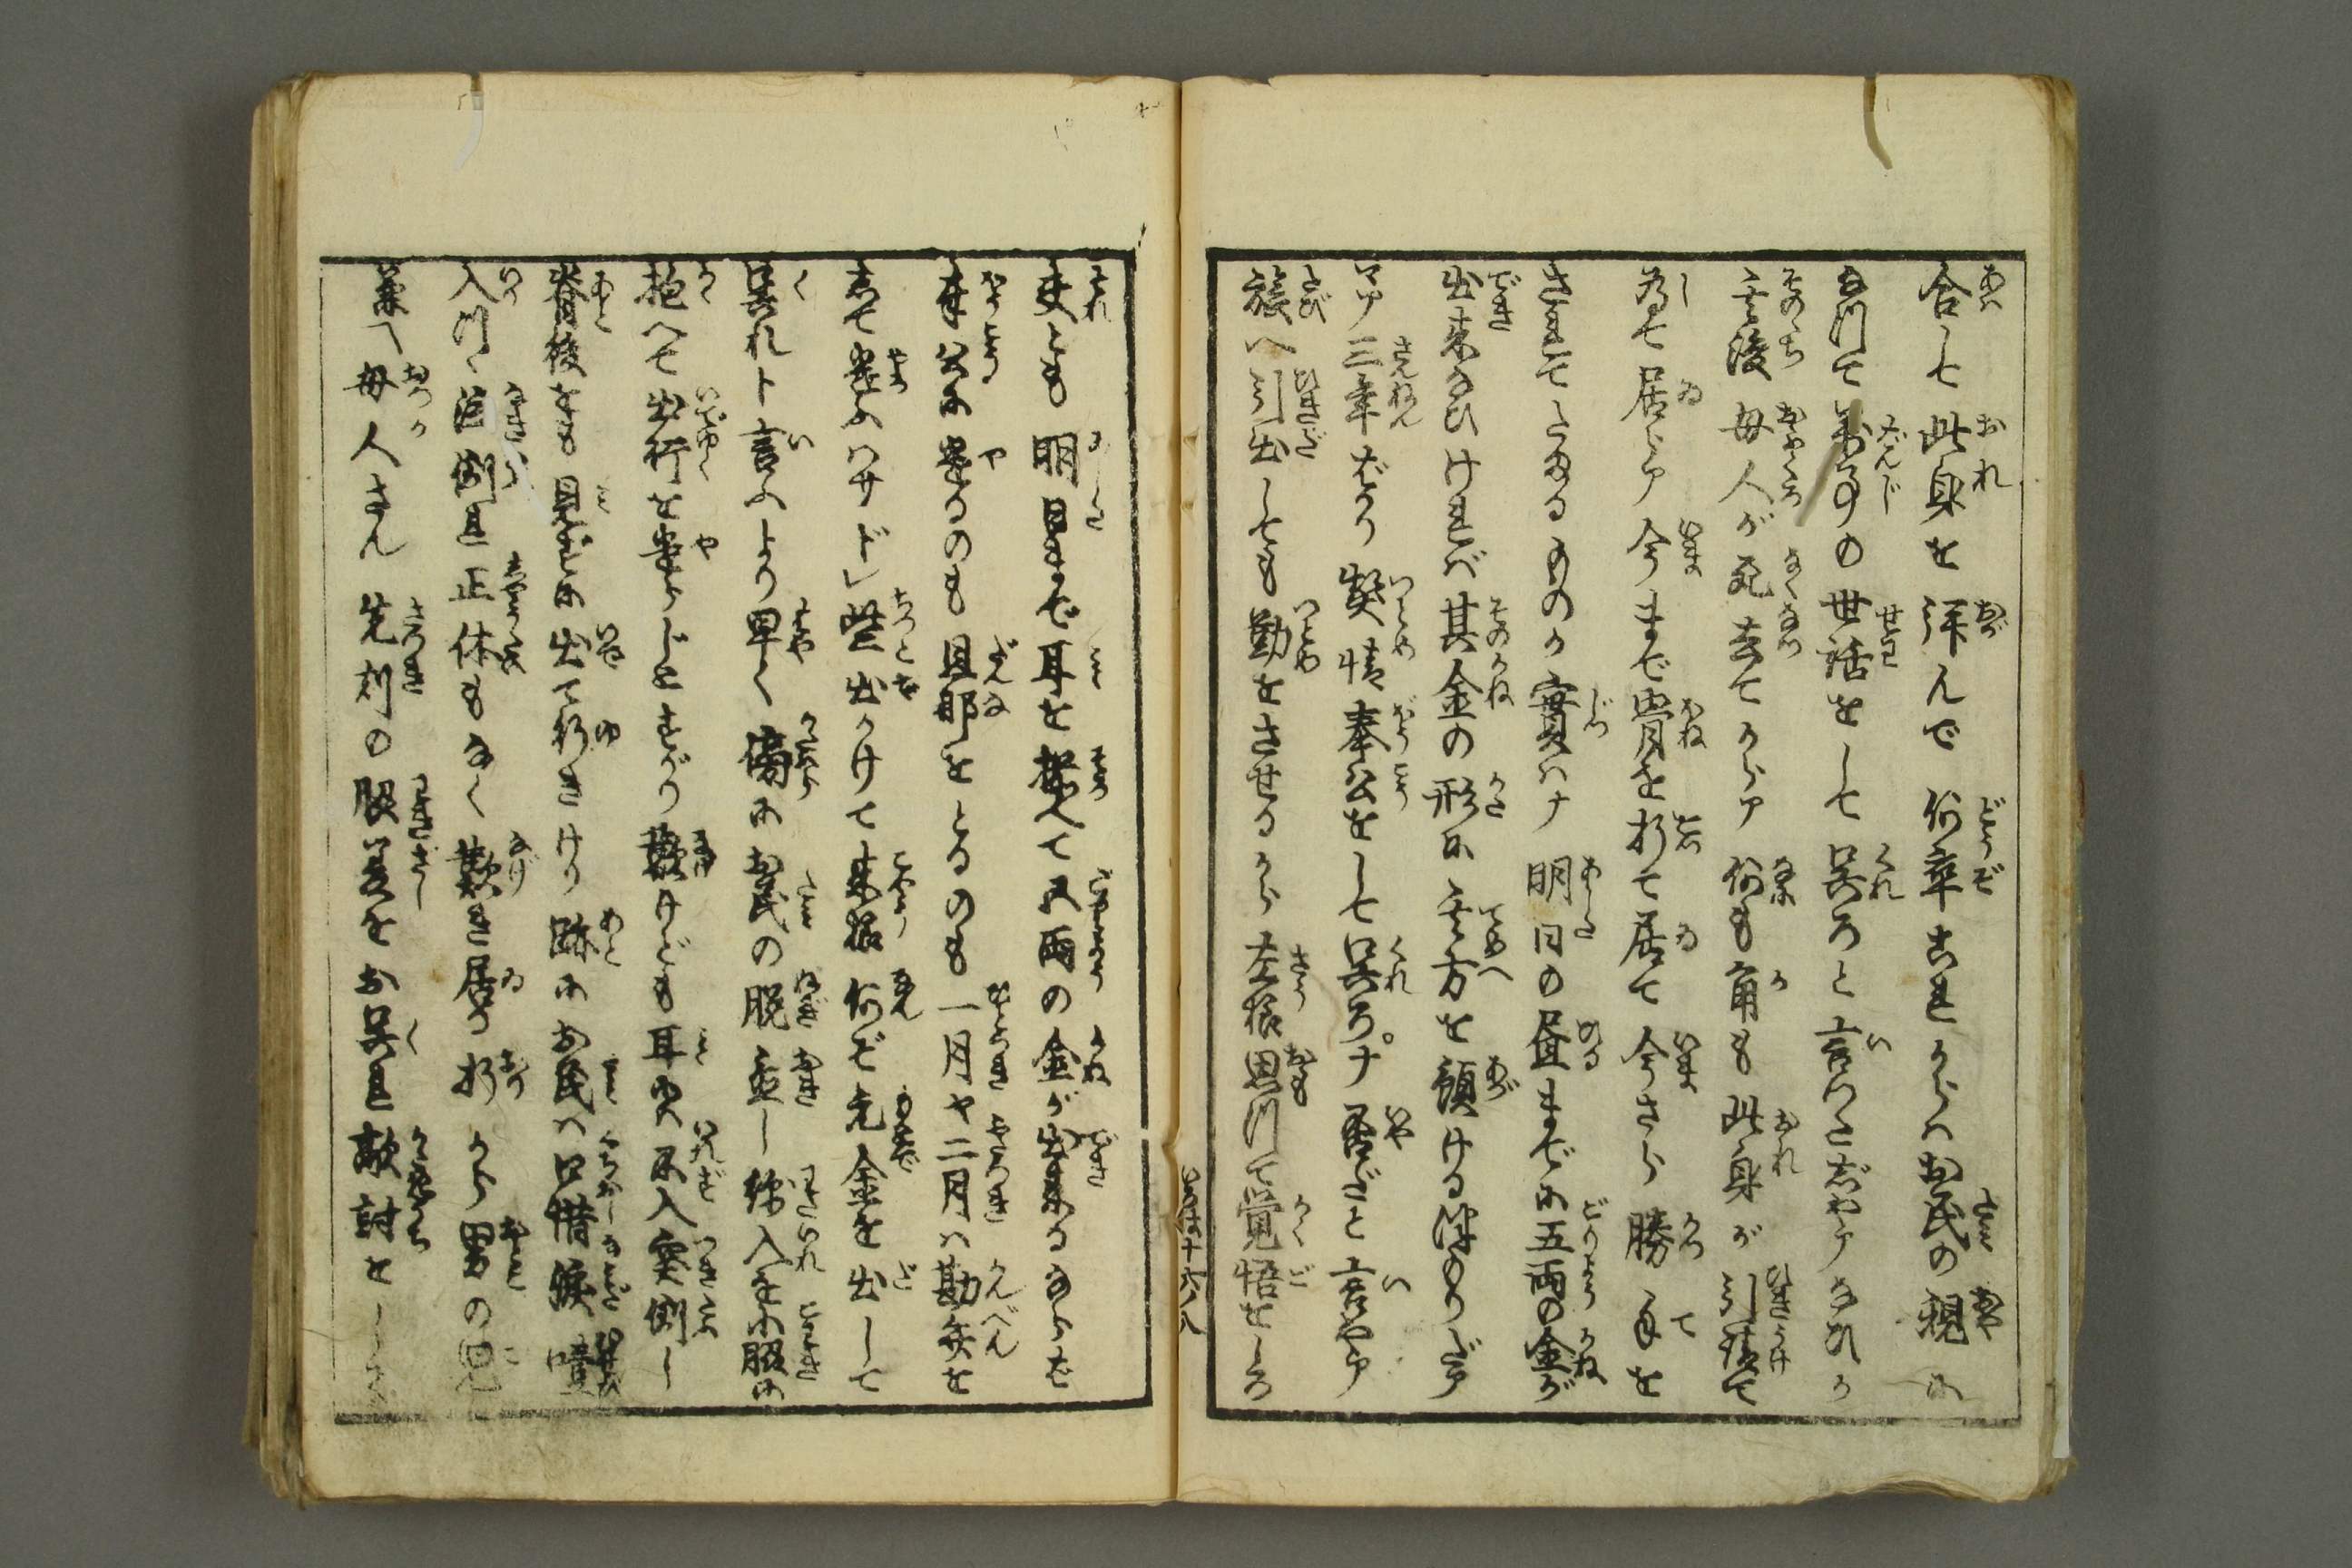 合して此身を拝んで何卒これからはお民の親に
なつて万事の世話をして呉ろと言たぢやアないか
其後母人が死去てからア何も角も此身が引請て
為て居らア今まで骨を折て居て今さら勝手を
されてたまるものか實はナ明日の昼までに五両の金が
出来ないければ其金の形に其方を預ける積りだア
マア三年ばかり契情奉公をして呉ろ。ナ否だと言やア
旅へ引出しても勤をさせるから左様思つて覚悟をしろ
夫とも明日まで耳を揃へて五両の金が出来るならば
奉公に遣るのも旦那をとるのも一月や二月は勘弁を
して遣ふハサドレ些出かけて来様何ぞ元金を出して
呉れト言ふより早く傍にお民の脱置し綿入を小脇に
抱へて出行を遣らじとすがり歎けども耳にも不入突倒し
脊後をも見ずに出て行きけり跡にお民は口惜涙噎
入つゝ泣倒れ正体もなく歎き居る折から男の児
兼へ母人さん先刻の脇差をお呉れ敵討を
いろは十六ノ八